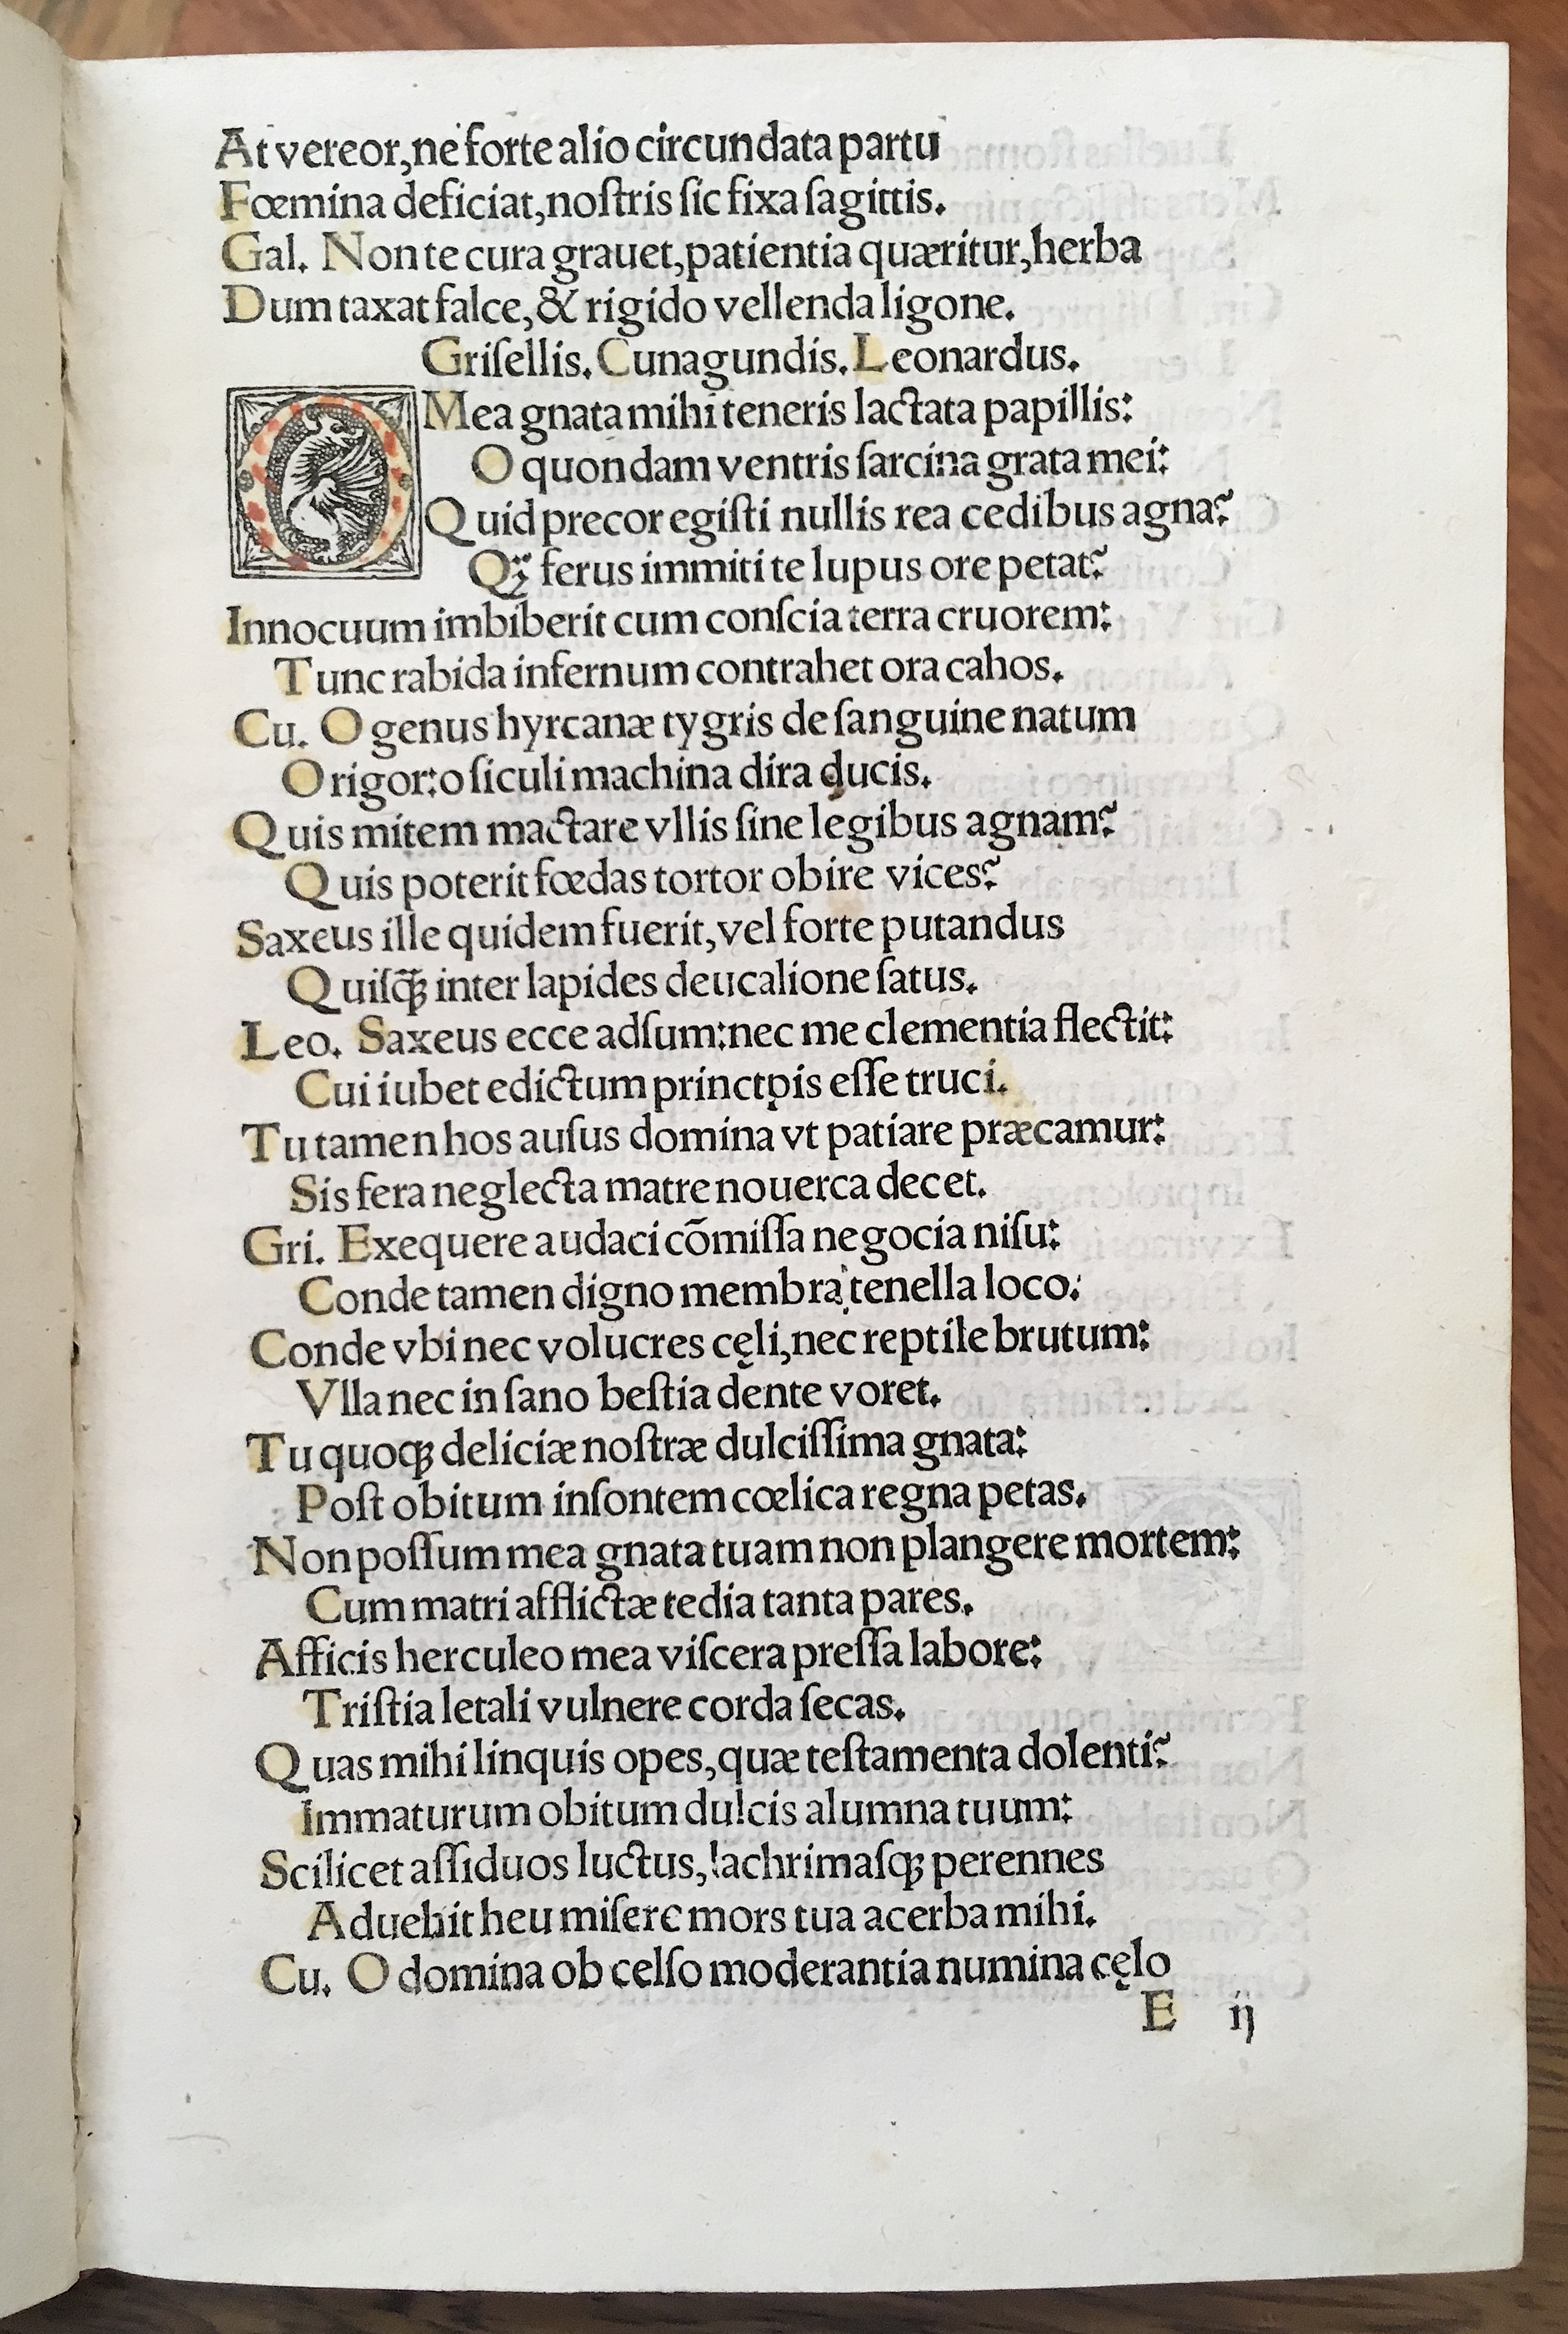 At vereor,ne forte alio circundata partu
Fœmina deficiat,noſtris ſic fixa ſagittis.
Gal. Non te cura grauet,patientia quæritur,herba
Dum taxat falce,& rigido vellenda ligone.
Griſellis. Cunagundis. Leonardus.
O Mea gnata mihi teneris lactata papillis:
O quondam ventris ſarcina grata mei:
Quid precor egiſti nullis rea cedibus agna?
Qꝫ̃ ferus immiti te lupus ore petat?
Innocuum imbiberit cum conſcia terra cruorem:
Tunc rabida infernum contrahet ora cahos.
Cu. O genus hyrcanæ tygris de ſanguine natum
O rigor:o ſiculi machina dira ducis.
Quis mitem mactare vllis ſine legibus agnam?
Quis poterit fœdas tortor obire vices?
Saxeus ille quidem fuerit,vel forte putandus
Quiſq̃ꝫ inter lapides deucalione ſatus.
Leo. Saxeus ecce adſum:nec me clementia flectit:
Cui iubet edictum princtpis eſſe truci.
Tu tamen hos auſus domina vt patiare præcamur:
Sis fera neglecta matre nouerca decet.
Gri. Exequere audaci cõmiſſa negocia niſu:
Conde tamen digno membra tenella loco:
Conde vbi nec volucres cęli,nec reptile brutum:
Vlla nec in ſano beſtia dente voret.
Tu quoqꝫ deliciæ noſtræ dulciſſima gnata:
Poſt obitum inſontem cœlica regna petas.
Non poſſum mea gnata tuam non plangere mortem:
Cum matri afflictæ tedia tanta pares.
Afficis herculeo mea viſcera preſſa labore:
Triſtia letali vulnere corda ſecas.
Quas mihi linquis opes,quæ teſtamenta dolenti?
Immaturum obitum dulcis alumna tuum:
Scilicet aſſiduos luctus,lachrimaſqꝫ perennes
Aduehit heu miſere mors tua acerba mihi.
Cu. O domina ob celſo moderantia numina cęlo
E ij